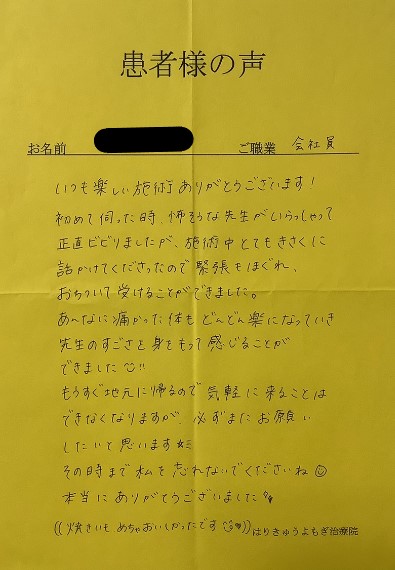 患者様の声
お名前 ご職業 会社員
いつも楽しい施術ありがとうございます！
初めて伺った時、怖そうな先生がいらっしゃって
正直ビビりましたが、施術中とてもきさくに
話かけてくださったので緊張もほぐれ、
おちついて受けることができました。
あんなに痛かった体もどんどん楽になっていき
先生のすごさを身をもって感じることが
できました!!
もうすぐ地元に帰るので気軽に来ることは
できなくなりますが、必ずまたお願い
したいと思います
その時まで私を忘れないでくださいね
本当にありがとうございました
((焼きいもめちゃおいしかったです))
はりきゅうよもぎ治療院